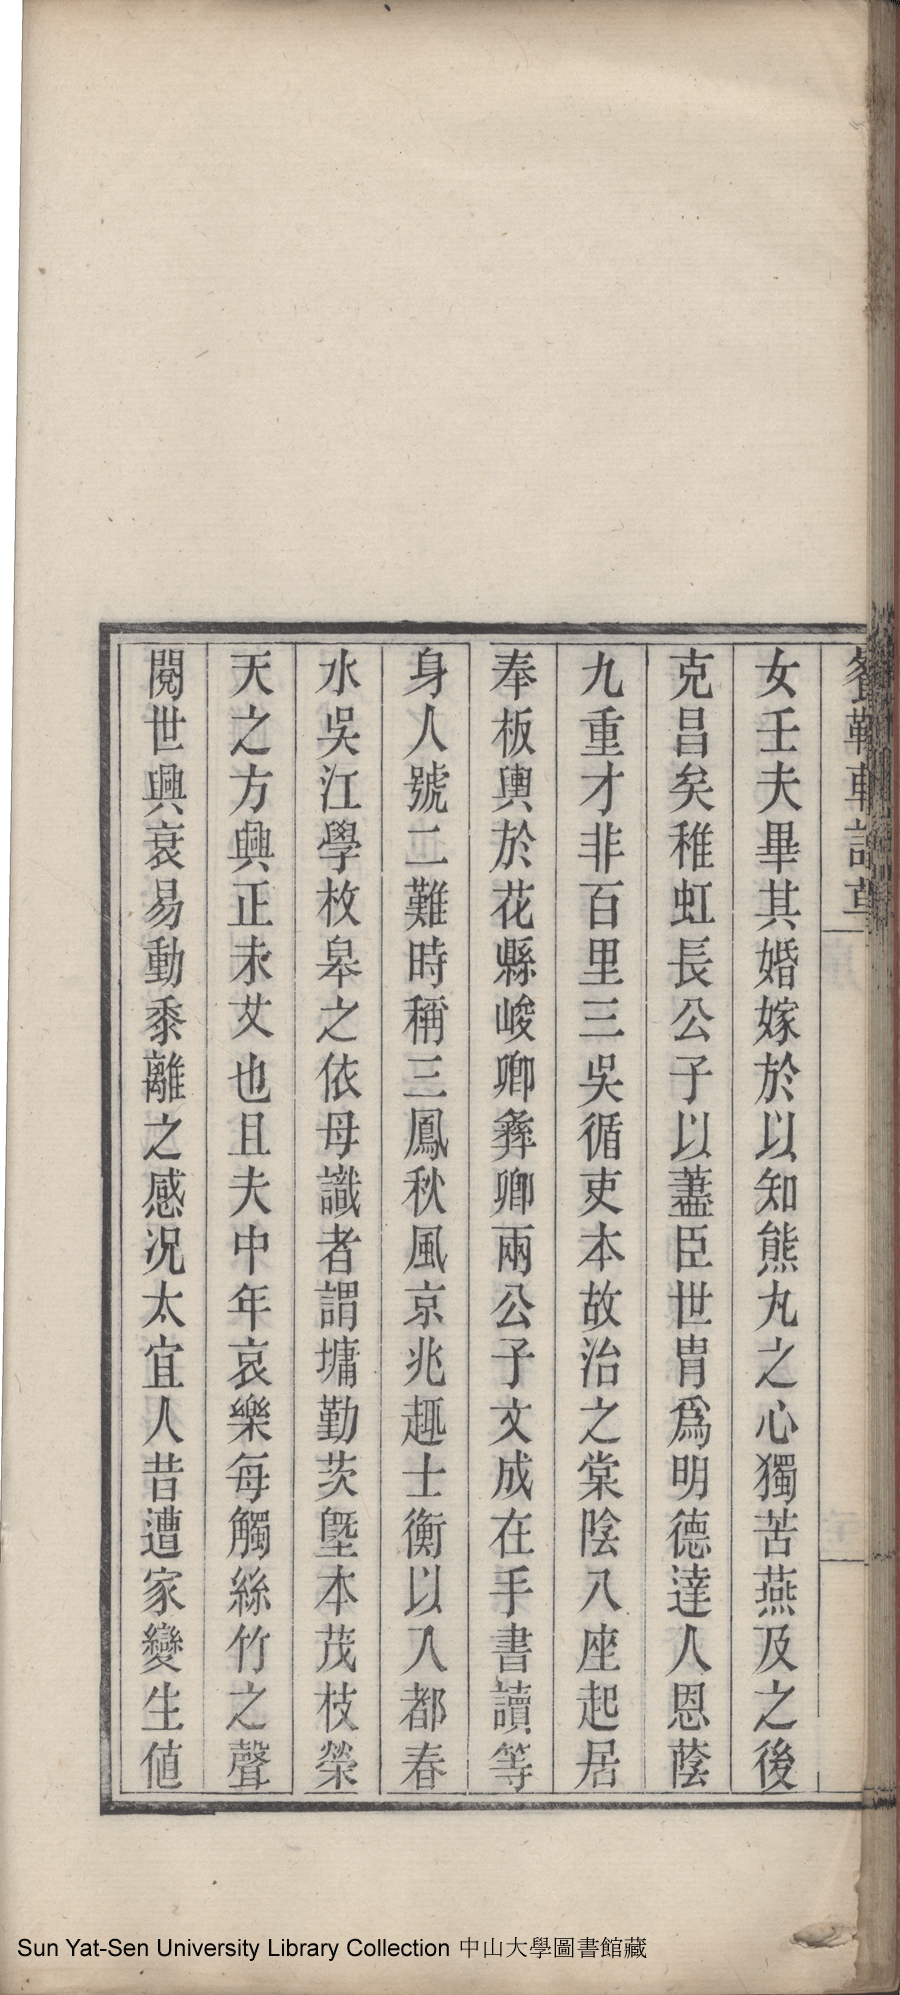 女壬夫畢其婚嫁於以知熊丸之心獨苦燕及之後
克昌矣稚虹長公子以藎臣世冑爲明德達人恩蔭
九重才非百里三吳循吏本故治之棠陰八座起居
奉板輿於花縣峻卿彝卿兩公子文成在手書讀等
身人號二難時稱三鳳秋風京兆趣士衡以入都春
水吳江學枚皋之依母識者謂墉勤茨墍本茂枝榮
天之方興正未艾也且夫中年哀樂每觸絲竹之聲
閱世興衰易動黍離之感況太宜人昔遭家變生値
Sun Yat-Sen University Library Collection 中山大學圖書館藏